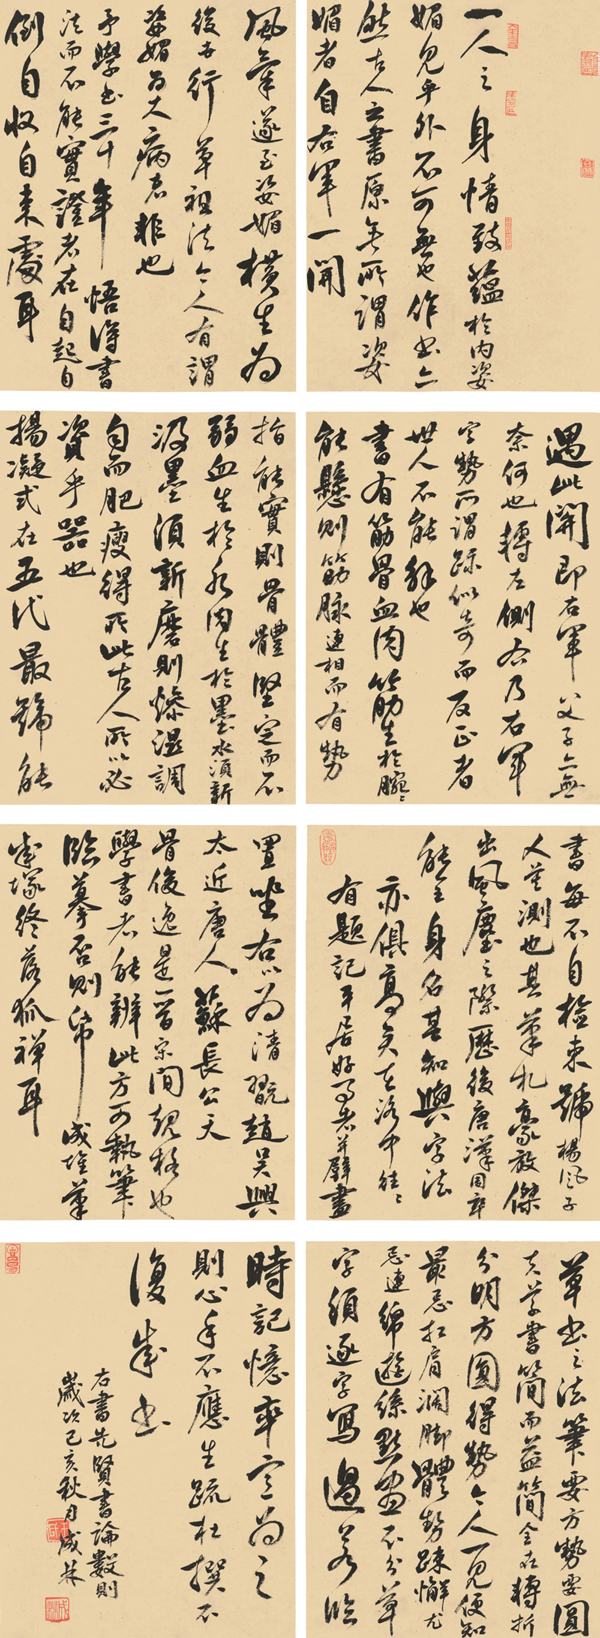 一人之身情致蘊於內姿
媚見乎外不可無也作書亦
然古人之書原無所謂姿
媚者自右軍一開
風氣遂至姿媚橫生為
後世行草祖法今人有謂
姿媚為大病者非也
予學書三十年悟得書
法而不能實證者在自起自
倒自收自束處耳
遇此關即右軍父子亦無
奈何也轉左側右乃右軍
字勢所謂跡似奇而反正者
世人不能解也
書有筋骨血肉筋生於腕腕
能懸則筋脈連相而有勢
指能實則骨體堅定而不
弱血生於水肉生於墨水須新
汲墨須新磨則燥濕調
勻而肥瘦得所此古人所以必
資乎器也
楊凝式在五代最號能
書每不自檢束號楊風子
人莫測也其筆札豪放傑
出風塵之際歷後唐漢周卒
能全身名其知與字法
亦俱高矣在洛中往往
有題記平居好事者并壁畫
置坐右以為清翫趙吳興
太近唐人蘇長公天
骨俊逸是晉宋間規格也
學書者能辨此方可執筆
臨摹否則紙成堆筆
成塚終落狐禪耳
草書之法筆要方勢要圓
夫草書簡而益簡全在轉折
分明方圓得勢今人一見便知
最忌扛肩濶脚體勢疎懈尤
忌連綿遊絲點畫不分草
字須逐字寫過若臨
時記憶率意為之
則心手不應生疏杜撰不
復成書
右書先賢書論數則
歲次己亥秋月成林